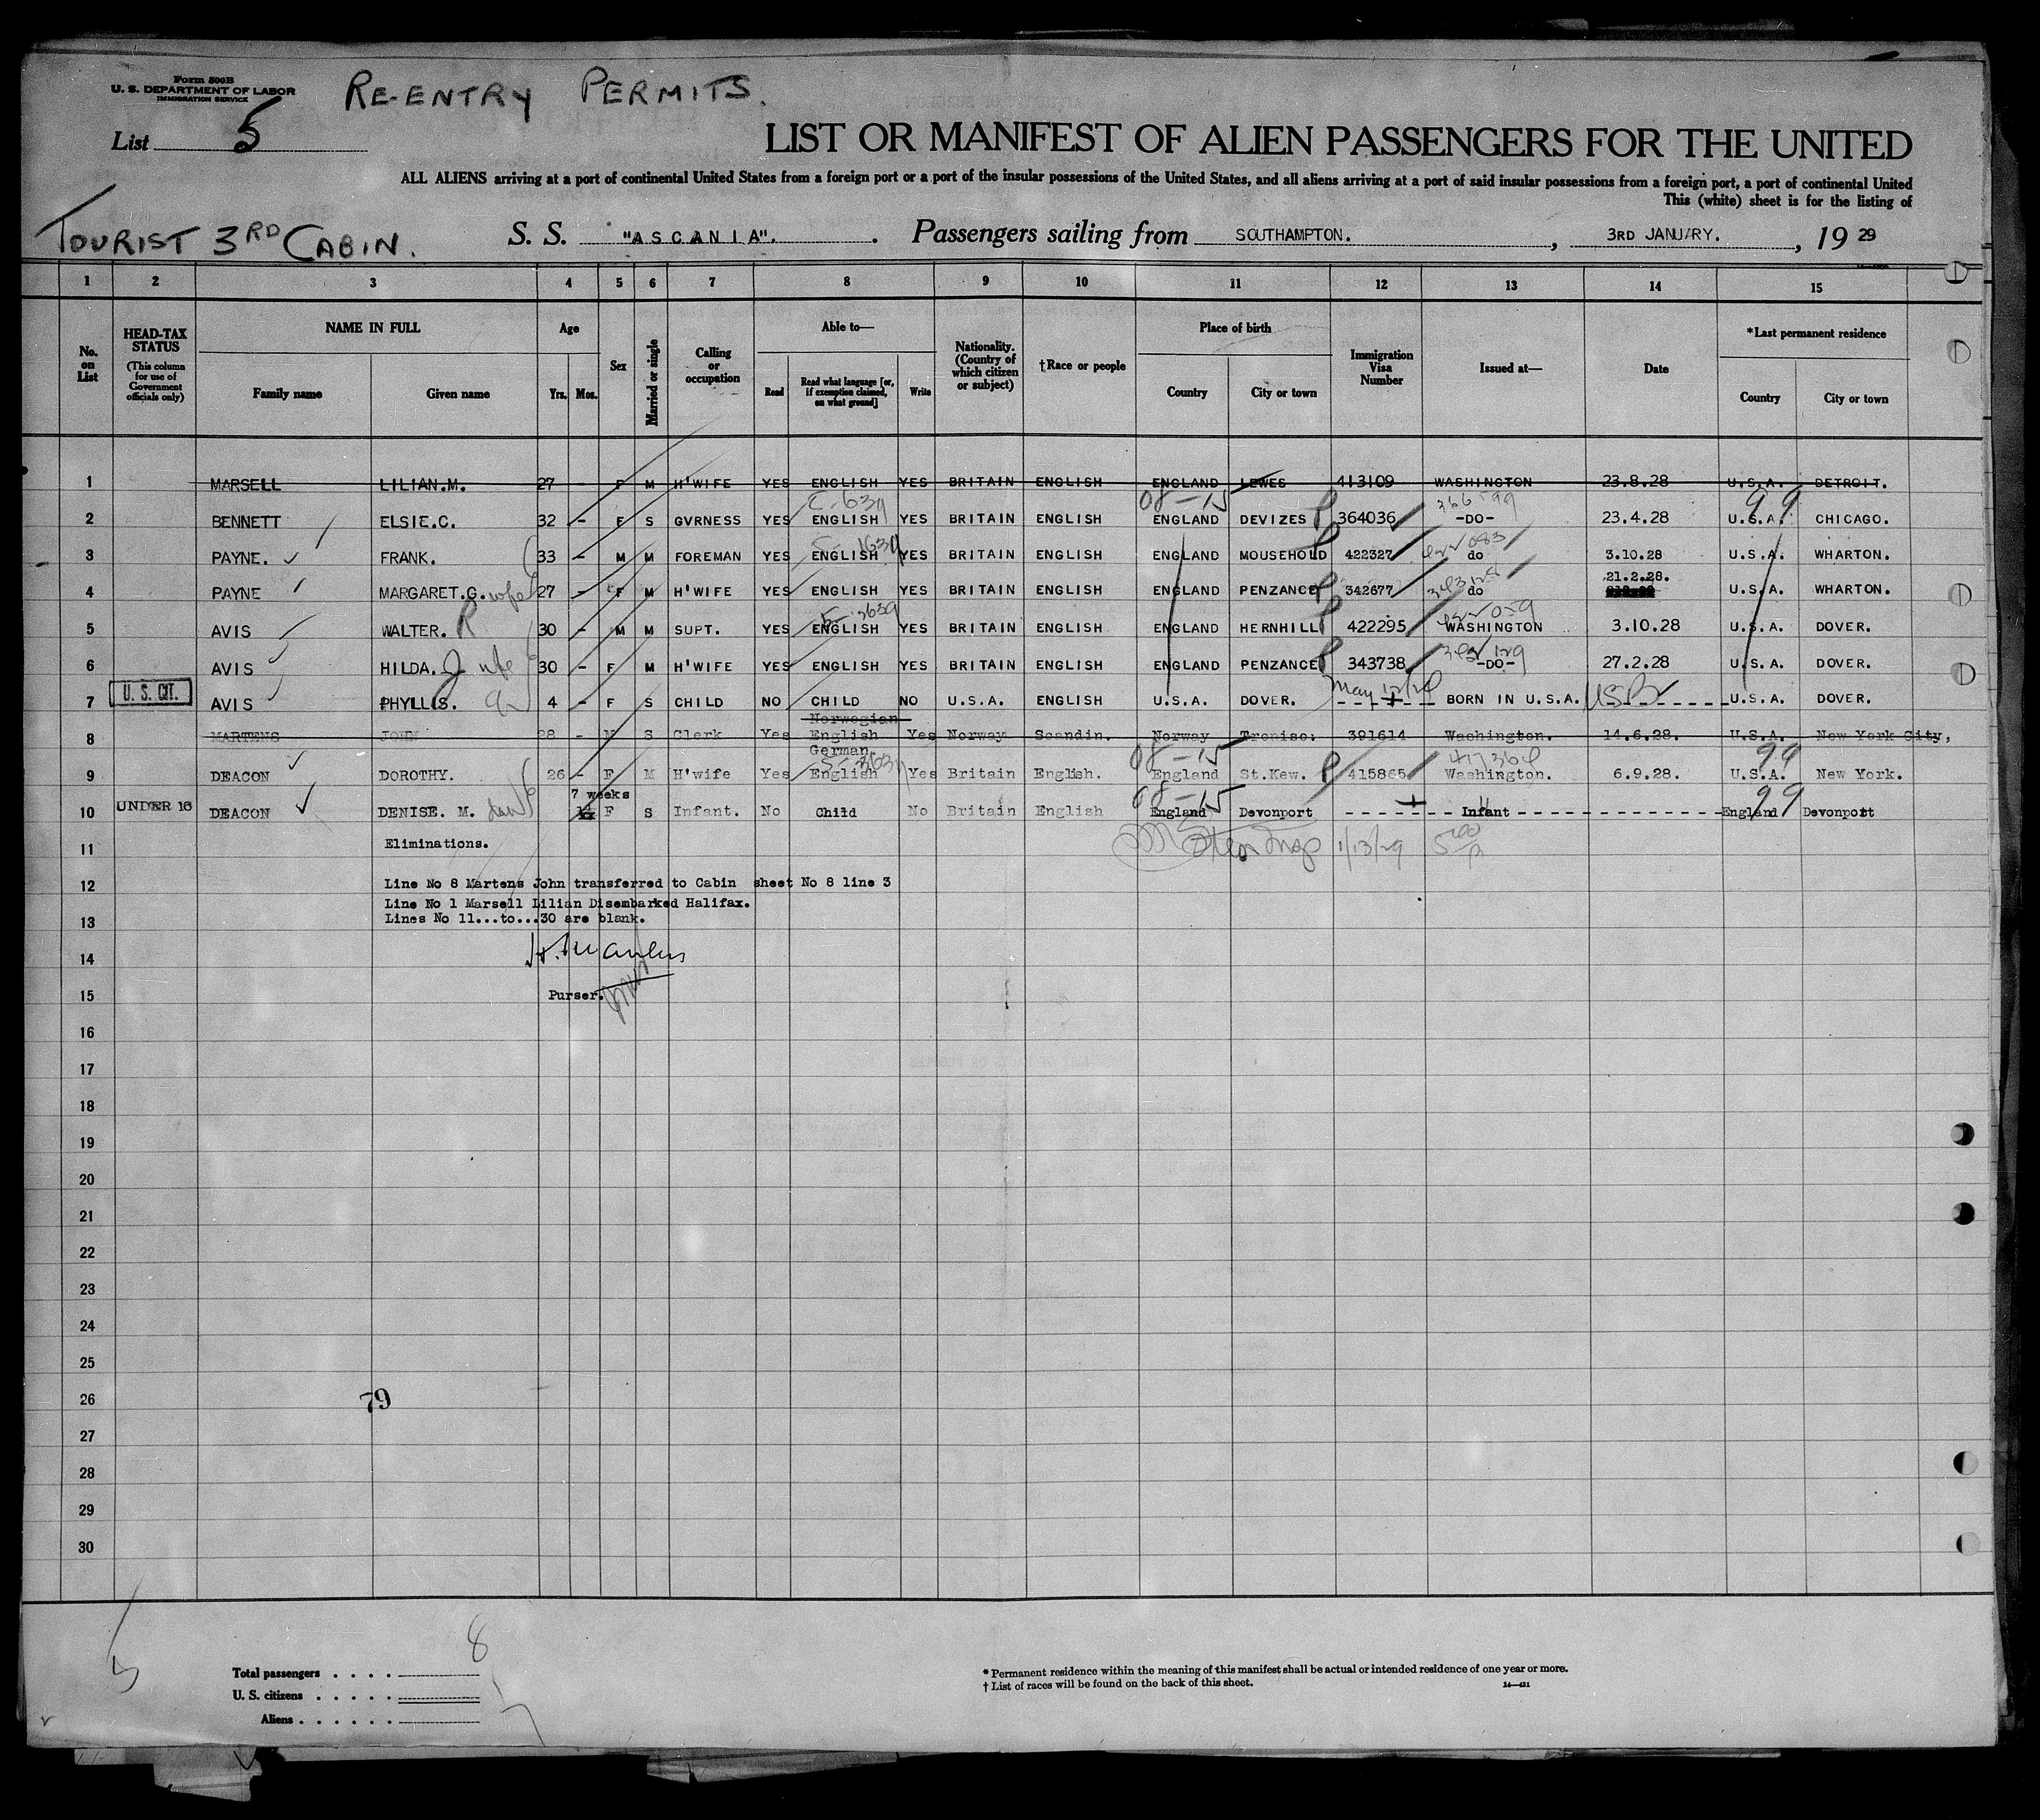 Form 500B
U. S. DEPARTMENT OF LABOR
IMMIGRATION SERVICE
RE-ENTRY PERMITS.
List 5
LIST OR MANIFEST OF ALIEN PASSENGERS FOR THE UNITED
ALL ALIENS arriving at a port of continental United States from a foreign port or a port of the insular possessions of the United States, and all aliens arriving at a port of said insular possessions from a foreign port, a port of continental United
This (white) sheet is for the listing of
TOURIST 3RD CABIN.
S. S. "ASCANIA". Passengers sailing from SOUTHAMPTON. , 3RD JANUARY. , 19 29
1 2 3 4 5 6 7 8 9 10 11 12 13 14 15
No. on List
HEAD-TAX STATUS
(This column for use of Government officials only)
NAME IN FULL
Family name Given name
Age
Yrs. Mos.
Sex
Married or single
Calling or occupation
Able to—
Read Read what language [or, if exemption claimed, on what ground] Write
Nationality. (Country of which citizen or subject)
†Race or people
Place of birth
Country City or town
Immigration Visa Number
Issued at—
Date
*Last permanent residence
Country City or town
1 MARSELL LILIAN.M. 27 F M H'WIFE YES ENGLISH YES BRITAIN ENGLISH ENGLAND LEWES 413109 WASHINGTON 23.8.28 U.S.A. DETROIT.
08-15 99
2 BENNETT ELSIE.C. 32 - F S GVRNESS YES ENGLISH YES BRITAIN ENGLISH ENGLAND DEVIZES 364036 -DO- 23.4.28 U.S.A. CHICAGO.
3 PAYNE. FRANK. 33 - M M FOREMAN YES ENGLISH YES BRITAIN ENGLISH ENGLAND MOUSEHOLD 422327 do 3.10.28 U.S.A. WHARTON.
21.2.28.
4 PAYNE MARGARET.G. wife 27 - F M H'WIFE YES ENGLISH YES BRITAIN ENGLISH ENGLAND PENZANCE 342677 do U.S.A. WHARTON.
5 AVIS WALTER. R 30 - M M SUPT. YES ENGLISH YES BRITAIN ENGLISH ENGLAND HERNHILL 422295 WASHINGTON 3.10.28 U.S.A. DOVER.
6 AVIS HILDA. J wife 30 - F M H'WIFE YES ENGLISH YES BRITAIN ENGLISH ENGLAND PENZANCE 343738 -DO- 27.2.28 U.S.A. DOVER.
U. S. CIT.
7 AVIS PHYLLIS. 4 - F S CHILD NO CHILD NO U.S.A. ENGLISH U.S.A. DOVER. BORN IN U.S.A. USB U.S.A. DOVER.
Norwegian
8 MARTENS JOHN 28 - M S Clerk Yes English Yes Norway Scandin. Norway 391614 Washington. 14.6.28. U.S.A. New York City,
German.
08-15 99
9 DEACON DOROTHY. 26 - F M H'wife Yes English Yes Britain English. England St.Kew. 415865 Washington. 6.9.28. U.S.A. New York.
7 weeks
08-15 99
10 UNDER 16 DEACON DENISE. M. F S Infant. No Child No Britain English England Devonport Infant England Devonport
11 Eliminations. 1/13/29
12 Line No 8 Martens John transferred to Cabin sheet No 8 line 3
Line No 1 Marsell Lilian Disembarked Halifax.
13 Lines No 11...to...30 are blank.
14
15 Purser.
16
17
18
19
20
21
22
23
24
25
26 79
27
28
29
30
8
Total passengers . . . .
U. S. citizens . . . . .
Aliens . . . . . .
* Permanent residence within the meaning of this manifest shall be actual or intended residence of one year or more.
† List of races will be found on the back of this sheet.
14—421